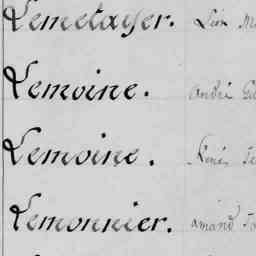 Lemetayer. Léon
Lemoine. André
Lemoine. René
Lemonnier. amand